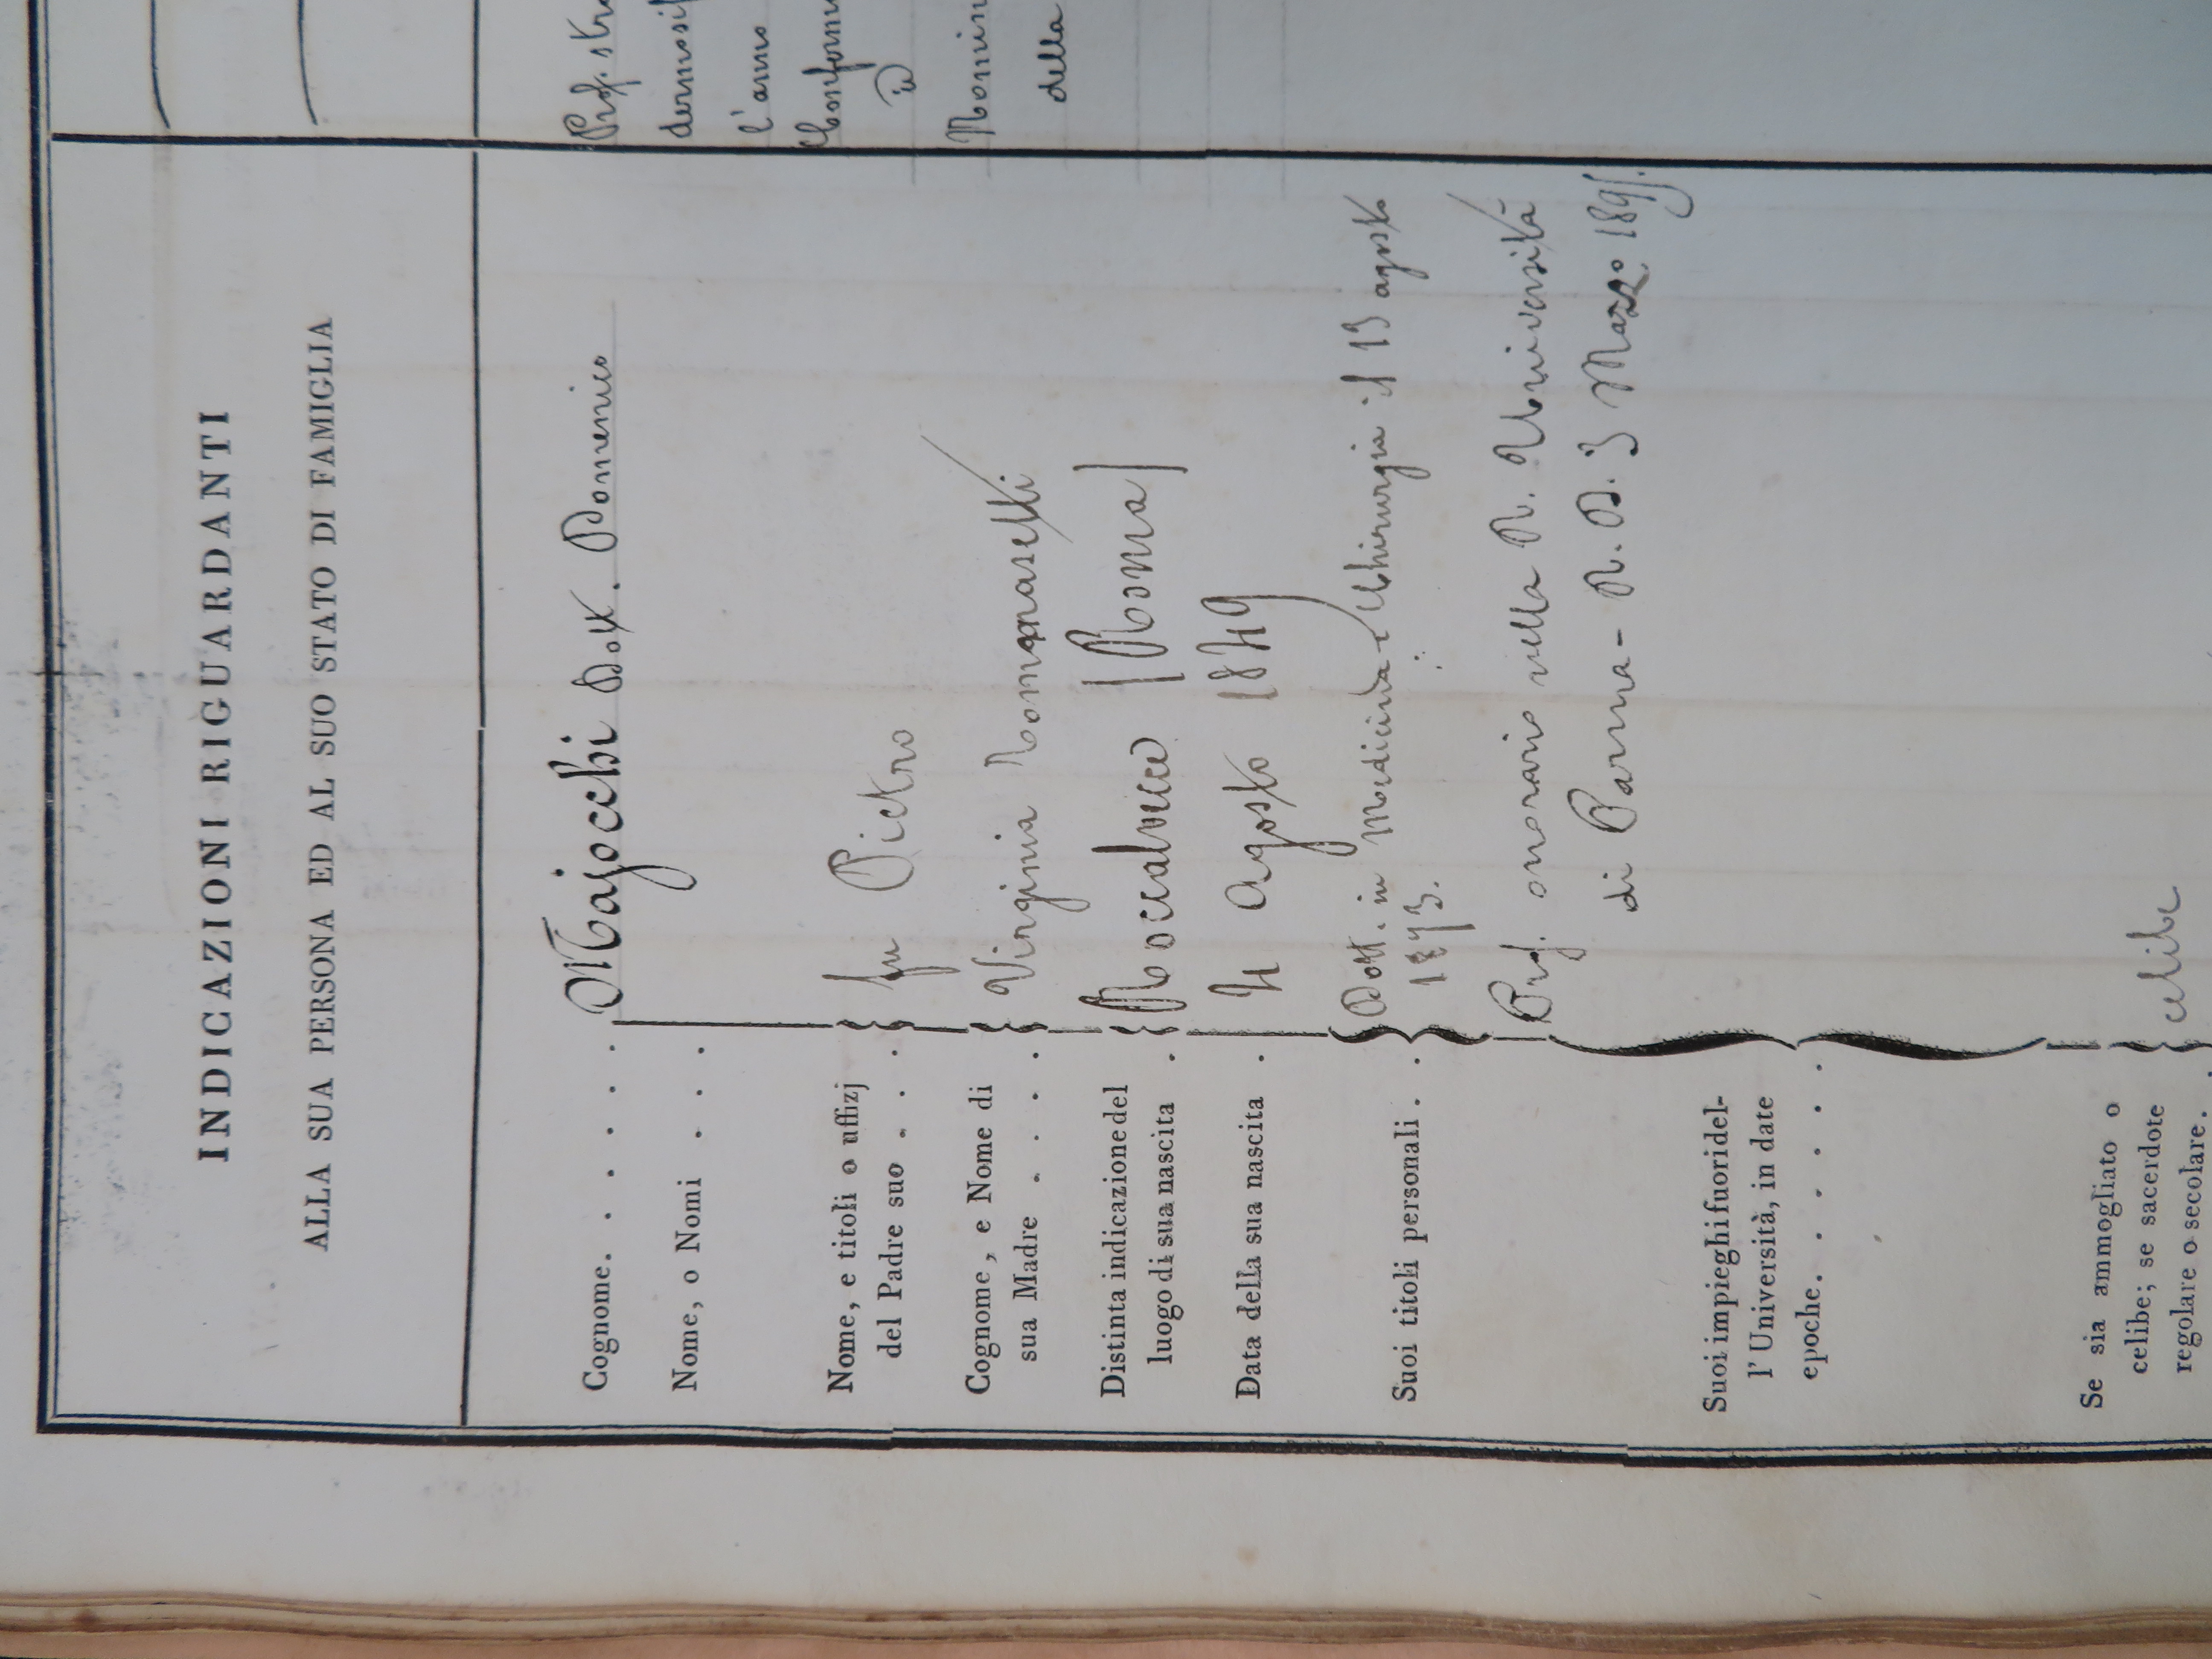 INDICAZIONI RIGUARDANTI
ALLA SUA PERSONA ED AL SUO STATO DI FAMIGLIA
Cognome. . . . . . Majocchi Dott. Domenico
Nome, o Noni . . . .
Nome, e titoli o uffizj
del Padre suo . . . fu Pietro
Cognome, e Nome di
sua Madre . . . . Virginia
Distinta indicazione del
luogo di sua nascita . Roccalvecce (Roma)
Data della sua nascita . 4 Agosto 1849
Suoi titoli personali . . Dott. in Medicina e Chirurgia il 13 agosto
1873.
Prof. onorario nella R. Università
di Parma - R. D. 3 Marzo 1891.
Suoi impieghi fuori del-
l' Università, in date
epoche. . . . . . .
Se sia ammogliato o
celibe; se sacerdote
regolare o secolare. . celibe
Prof. stra
dermosif
l'anno
Conferm
è
Nomin
della